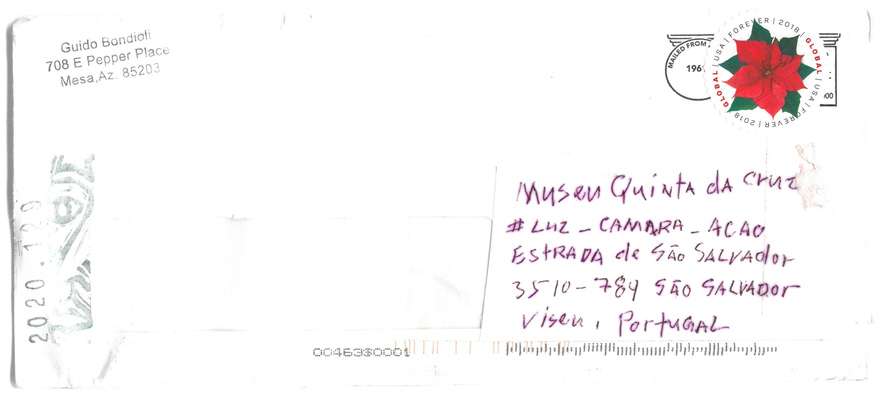 Guido Bondioli
708 E Pepper Place
Mesa,Az. 85203
MAILED FROM
GLOBAL | USA | FOREVER | 2018 | GLOBAL | USA | FOREVER | 2018
Museu Quinta da Cruz
# LUZ - CAMARA - ACAO
ESTRADA de SÃO SALVADor
3510-789 SÃO SALVADor
Viseu, PortuGAL
2020.129
0046380001